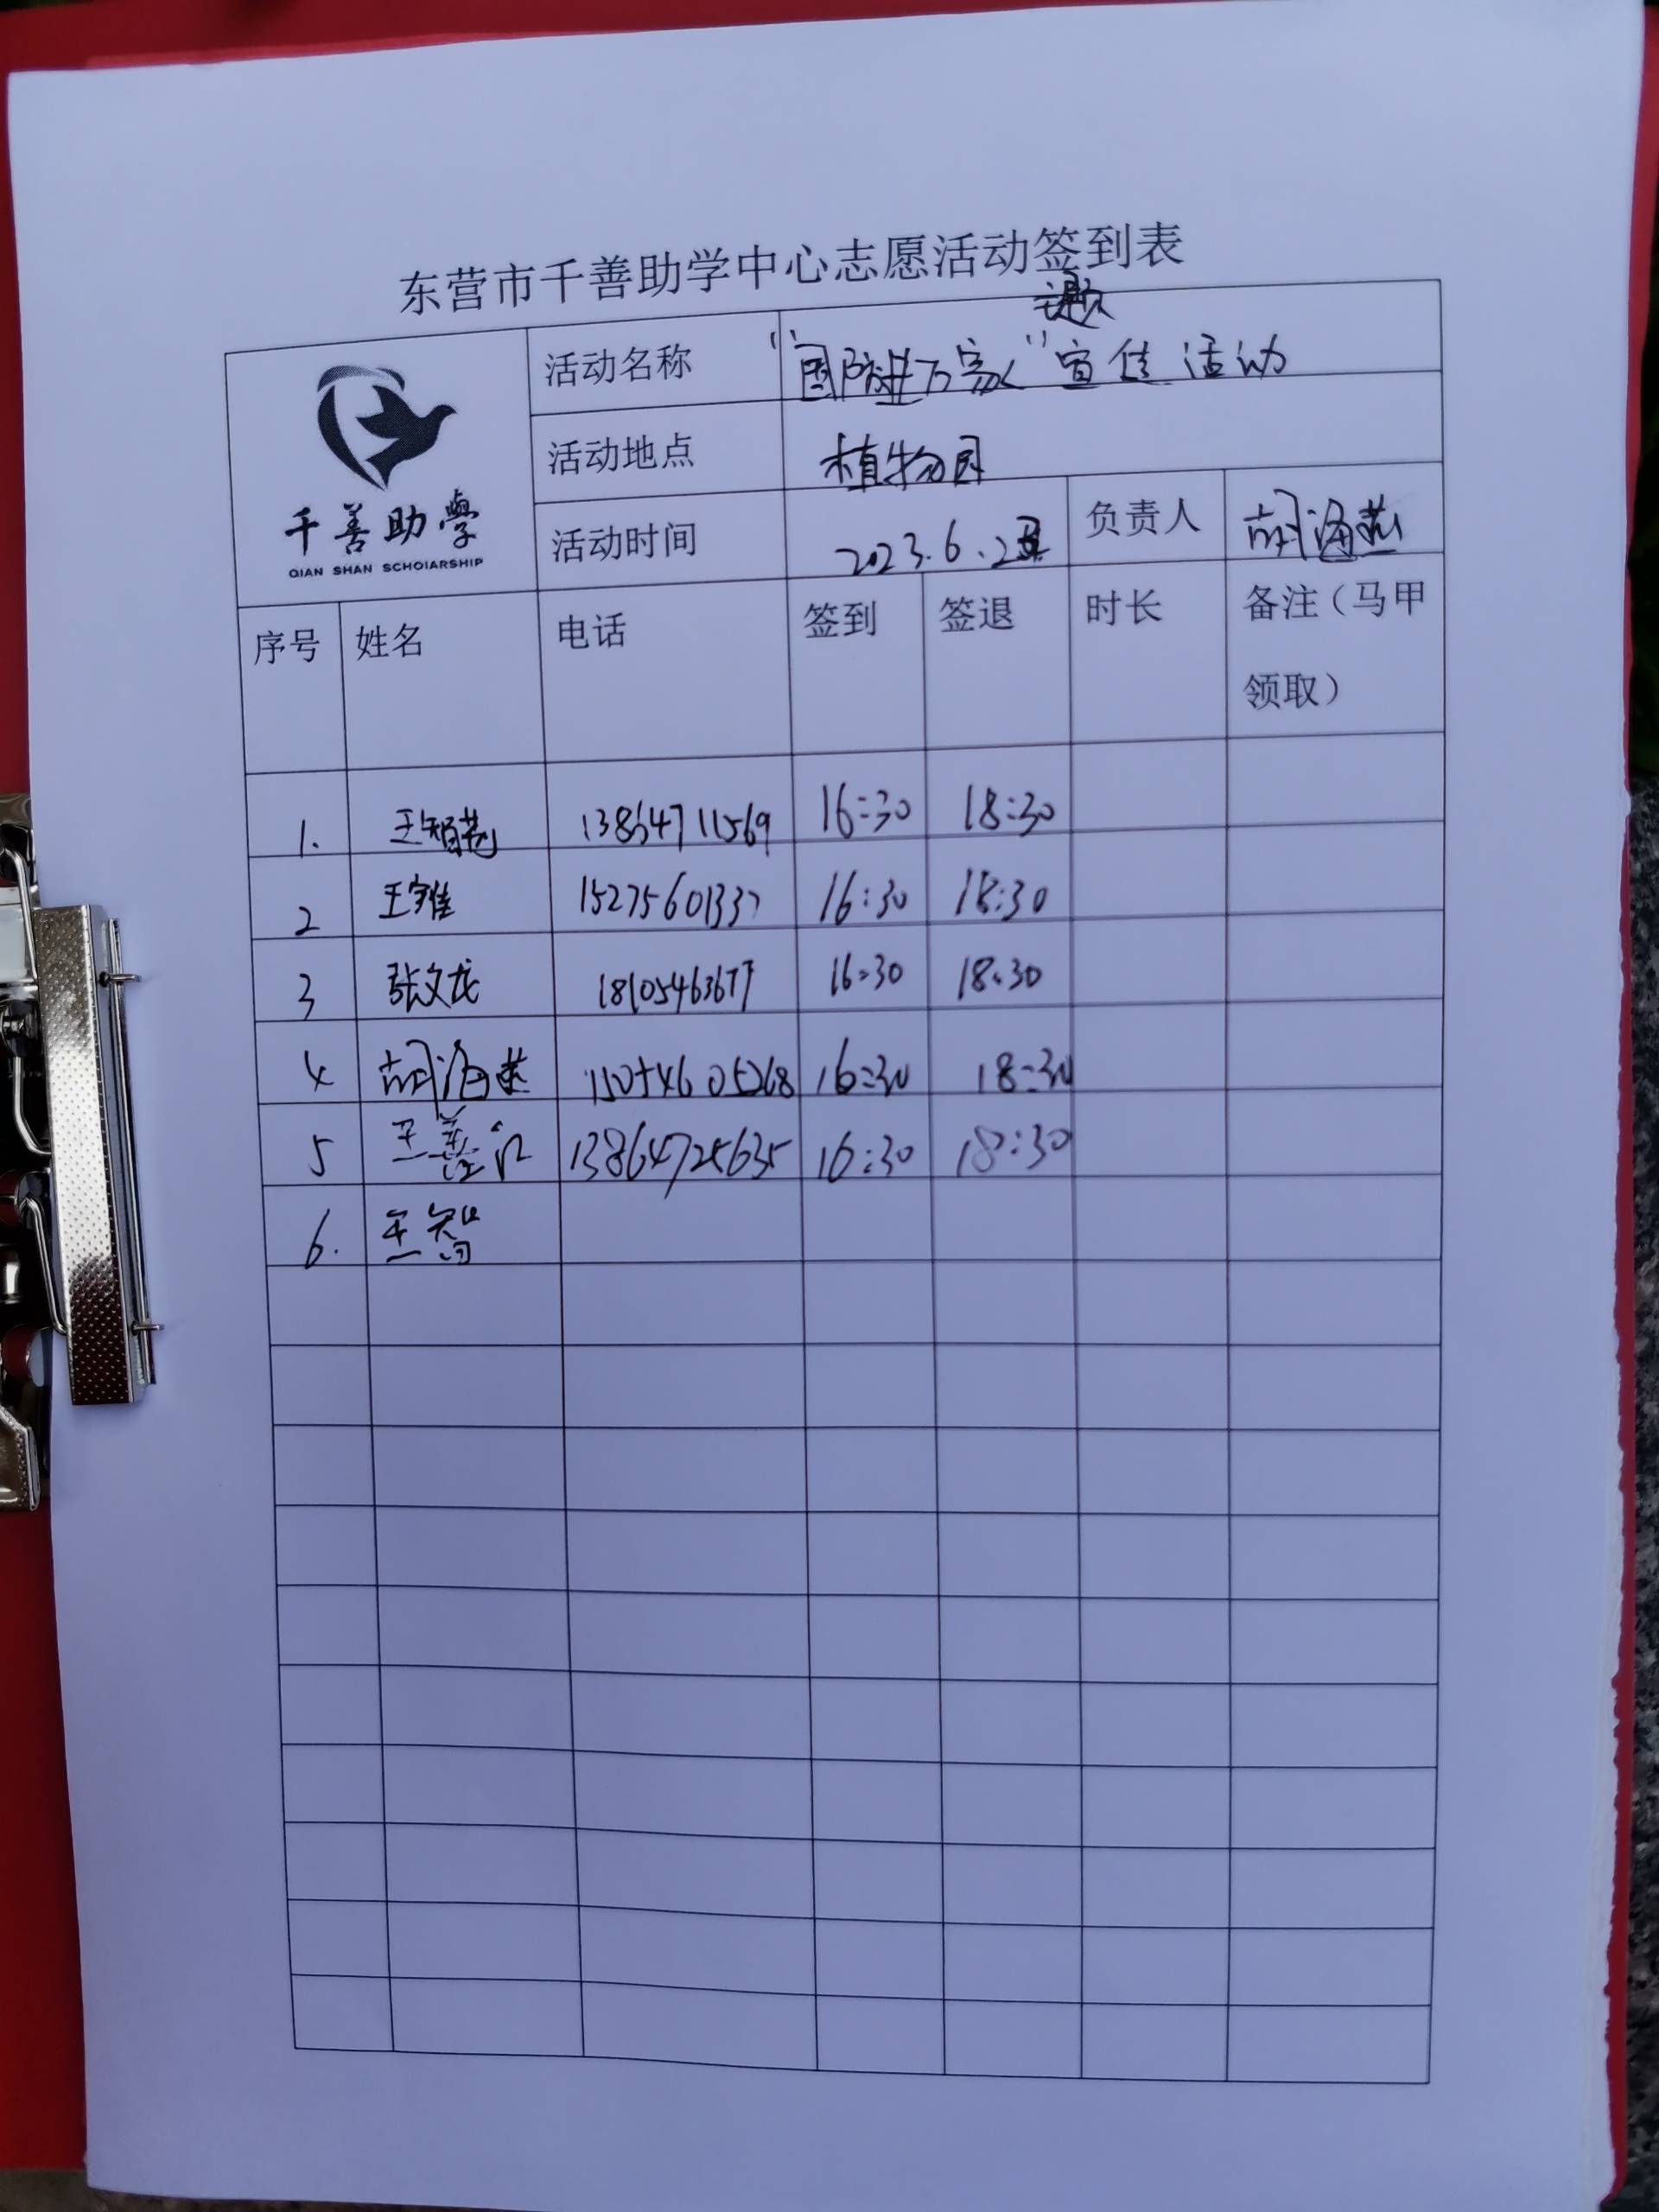 东营市千善助学中心志愿活动签到表
千善助學
QIAN SHAN SCHOIARSHIP
活动名称 "国防进万家" 宣传活动
活动地点 植物园
活动时间 2023.6.2 负责人 胡海燕
序号 姓名 电话 签到 签退 时长 备注（马甲
领取）
1. 13864711569 16:30 18:30
2 王维 16:30 18:30
3 张文龙 16:30 18:30
4 胡海燕 16:30 18:30
5 王善江 13864725635 16:30 18:30
6. 王智